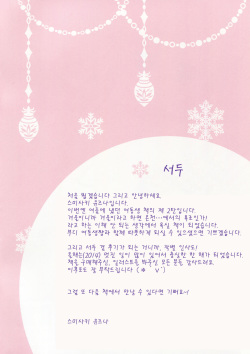 서두
처음 뵙겠습니다 그리고 안녕하세요.
스미사키 유즈나입니다.
이번엔 겨울에 냈던 여동생 책의 제 2탄입니다.
겨울이니까 겨울이라고 하면 온천…에서의 유코인가!
라고 하는 이해 안 되는 생각에서 욕실 책이 되었습니다.
부디 여동생과 함께 따뜻하게 되실 수 있으셨으면 기쁘겠습니다.
그리고 서두 겸 후기가 되는 거니까, 막별 인사도!
올해는(2014) 많은 일이 있어서 충실한 한 해가 되었습니다.
책을 구매해주신, 일러스트를 봐주신 모든 분들 감사드려요.
이후로도 잘 부탁드립니다
그럼 또 다음 책에서 만날 수 있다면 기뻐요~!
스미사키 유즈나